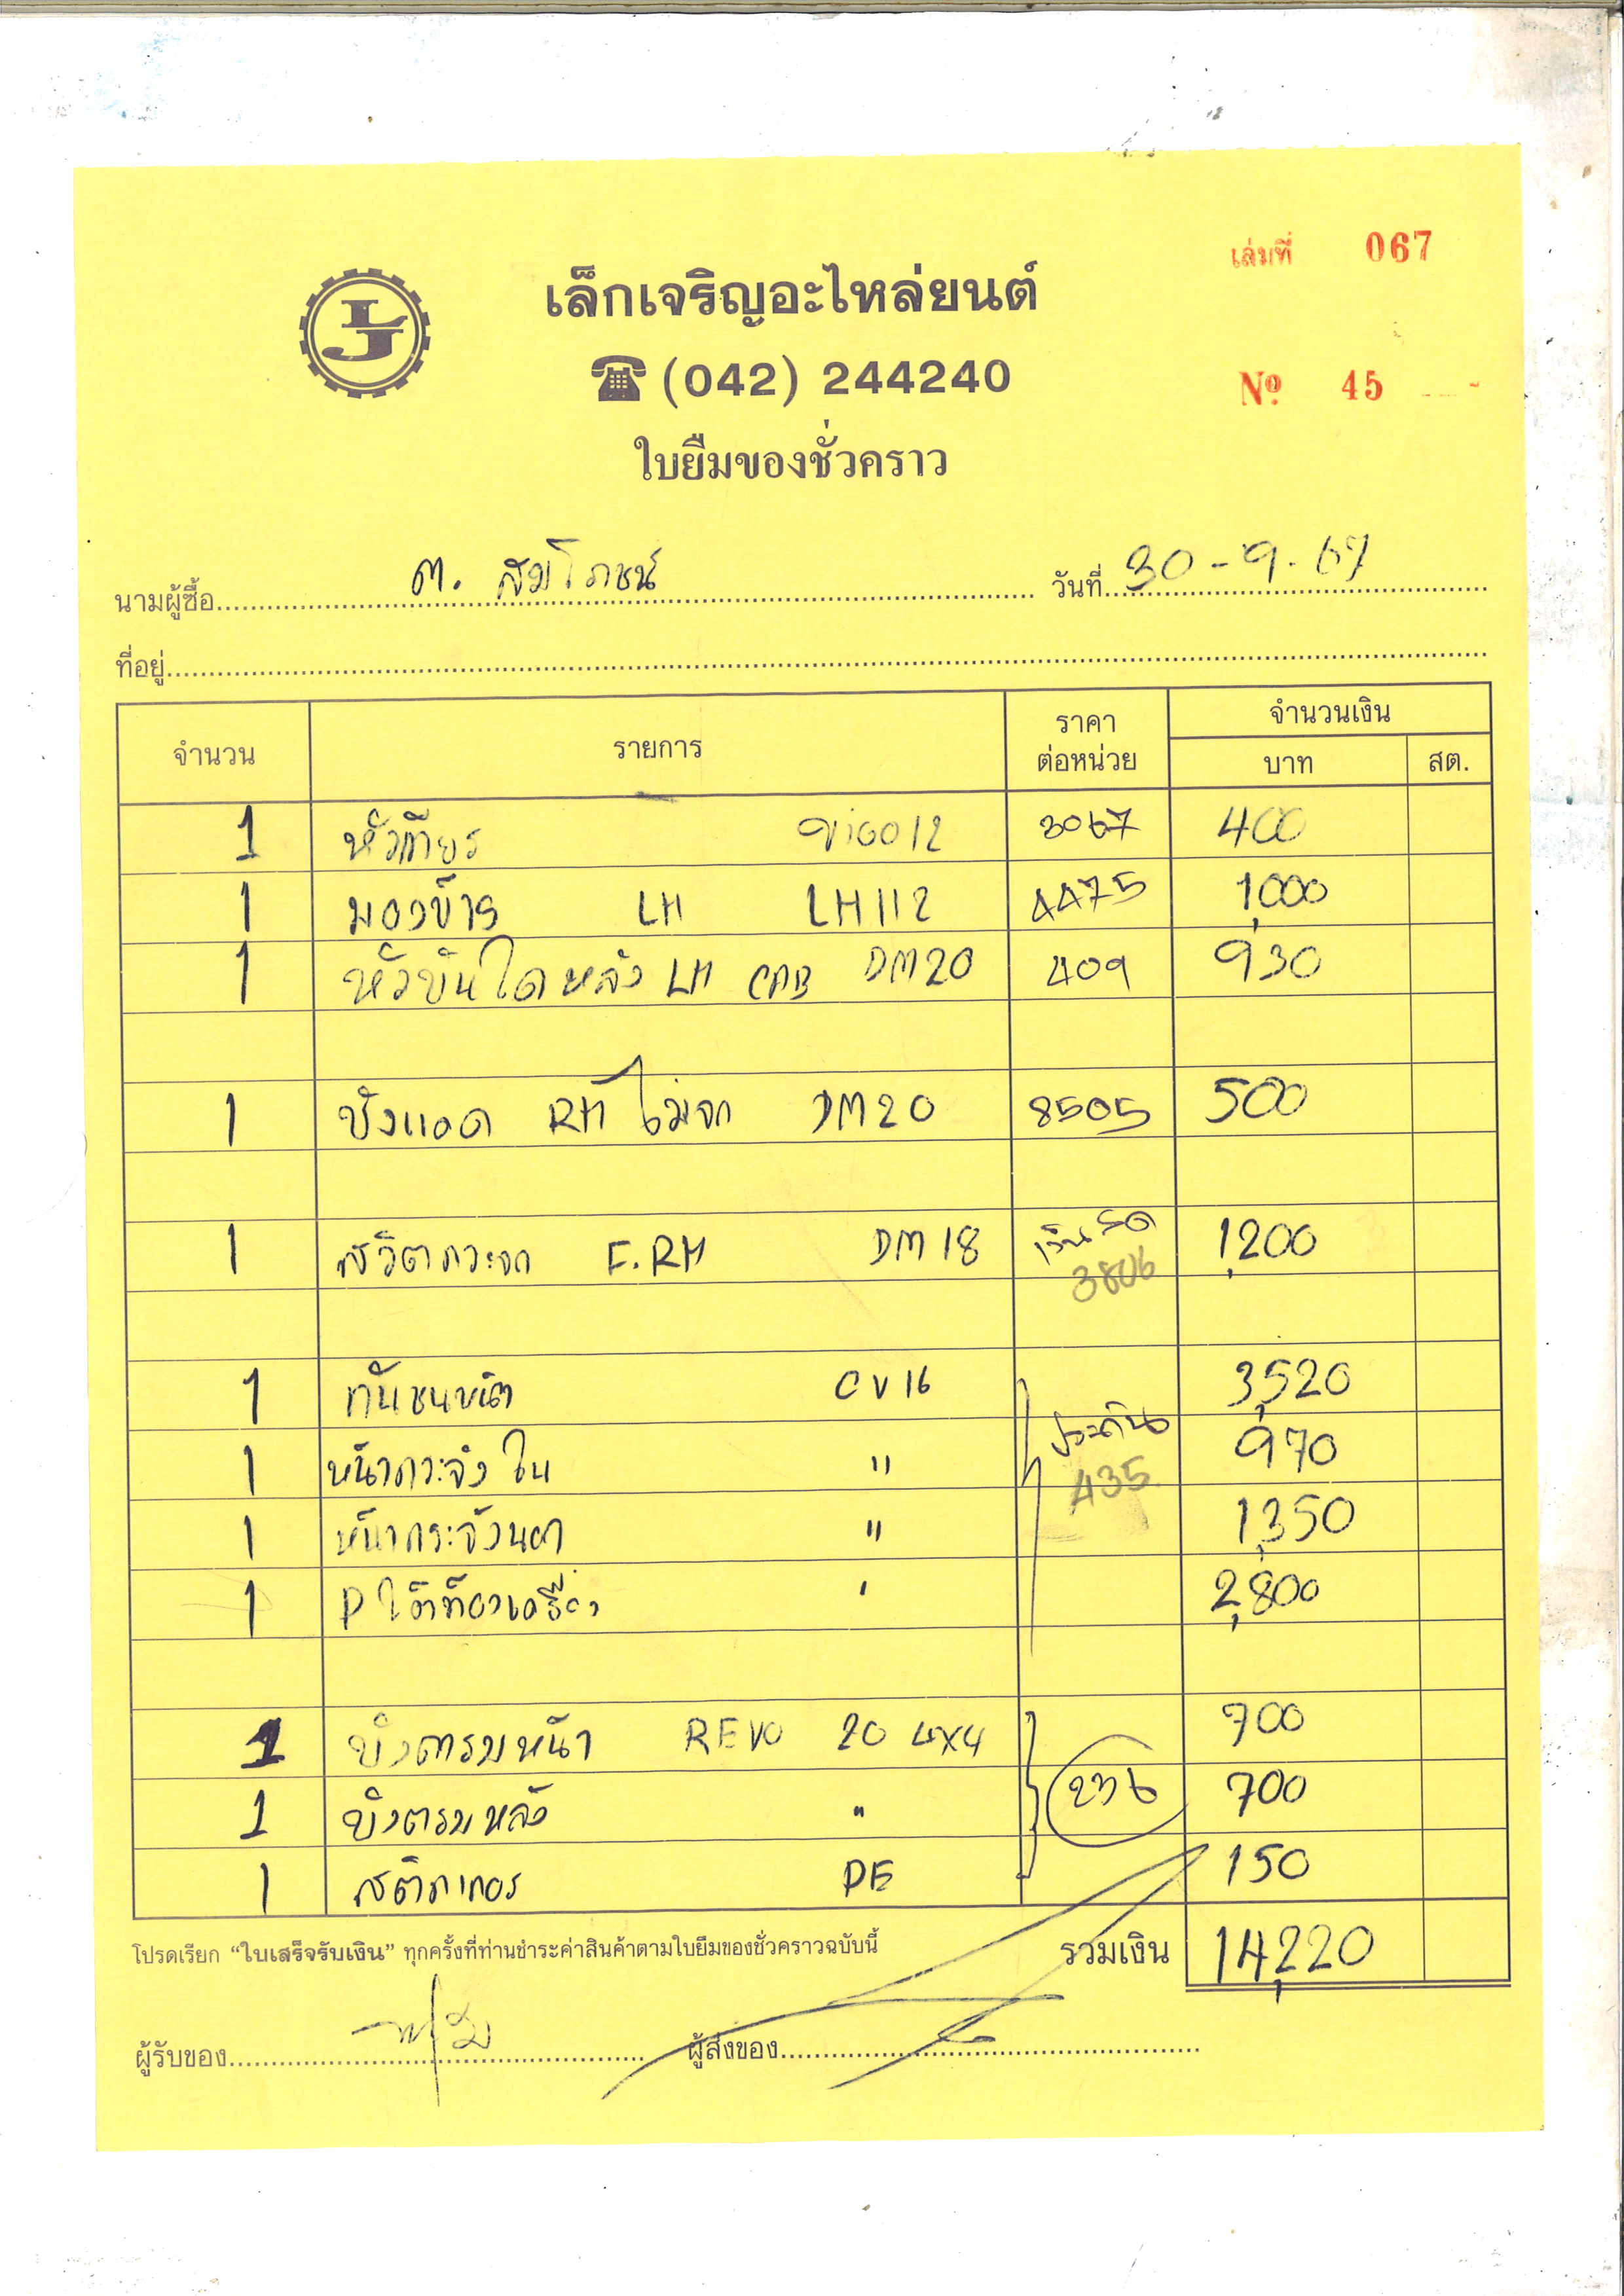 เล่มที่ 067
LJ
เล็กเจริญอะไหล่ยนต์
☎ (042) 244240
Nº 45
ใบยืมของชั่วคราว
นามผู้ซื้อ ต. สัมโภชน์ วันที่ 30-9-67
ที่อยู่
จำนวน รายการ ราคาต่อหน่วย จำนวนเงิน
บาท สต.
1 หัวเกียร VIGO12 3067 400
1 มองข้าง LH LH112 4475 1,000
1 หัวบันไดหลัง LH CAB DM20 409 930
1 บังแดด RH ไม่จก DM20 8505 500
1 สวิตกระจก F.RH DM18 เงินสด 3806 1,200
1 กันชนหน้า CV16 3,520
1 หน้ากระจังใน " ประกัน 435 970
1 หน้ากระจังนอก " 1,350
1 P ใต้ท้องเครื่อง ' 2,800
1 บังตรมหน้า REVO 20 4X4 700
1 บังตรมหลัง " 236 700
1 สติกเกอร PE 150
โปรดเรียก “ใบเสร็จรับเงิน” ทุกครั้งที่ท่านชำระค่าสินค้าตามใบยืมของชั่วคราวฉบับนี้ รวมเงิน 14,220
ผู้รับของ ผู้ส่งของ